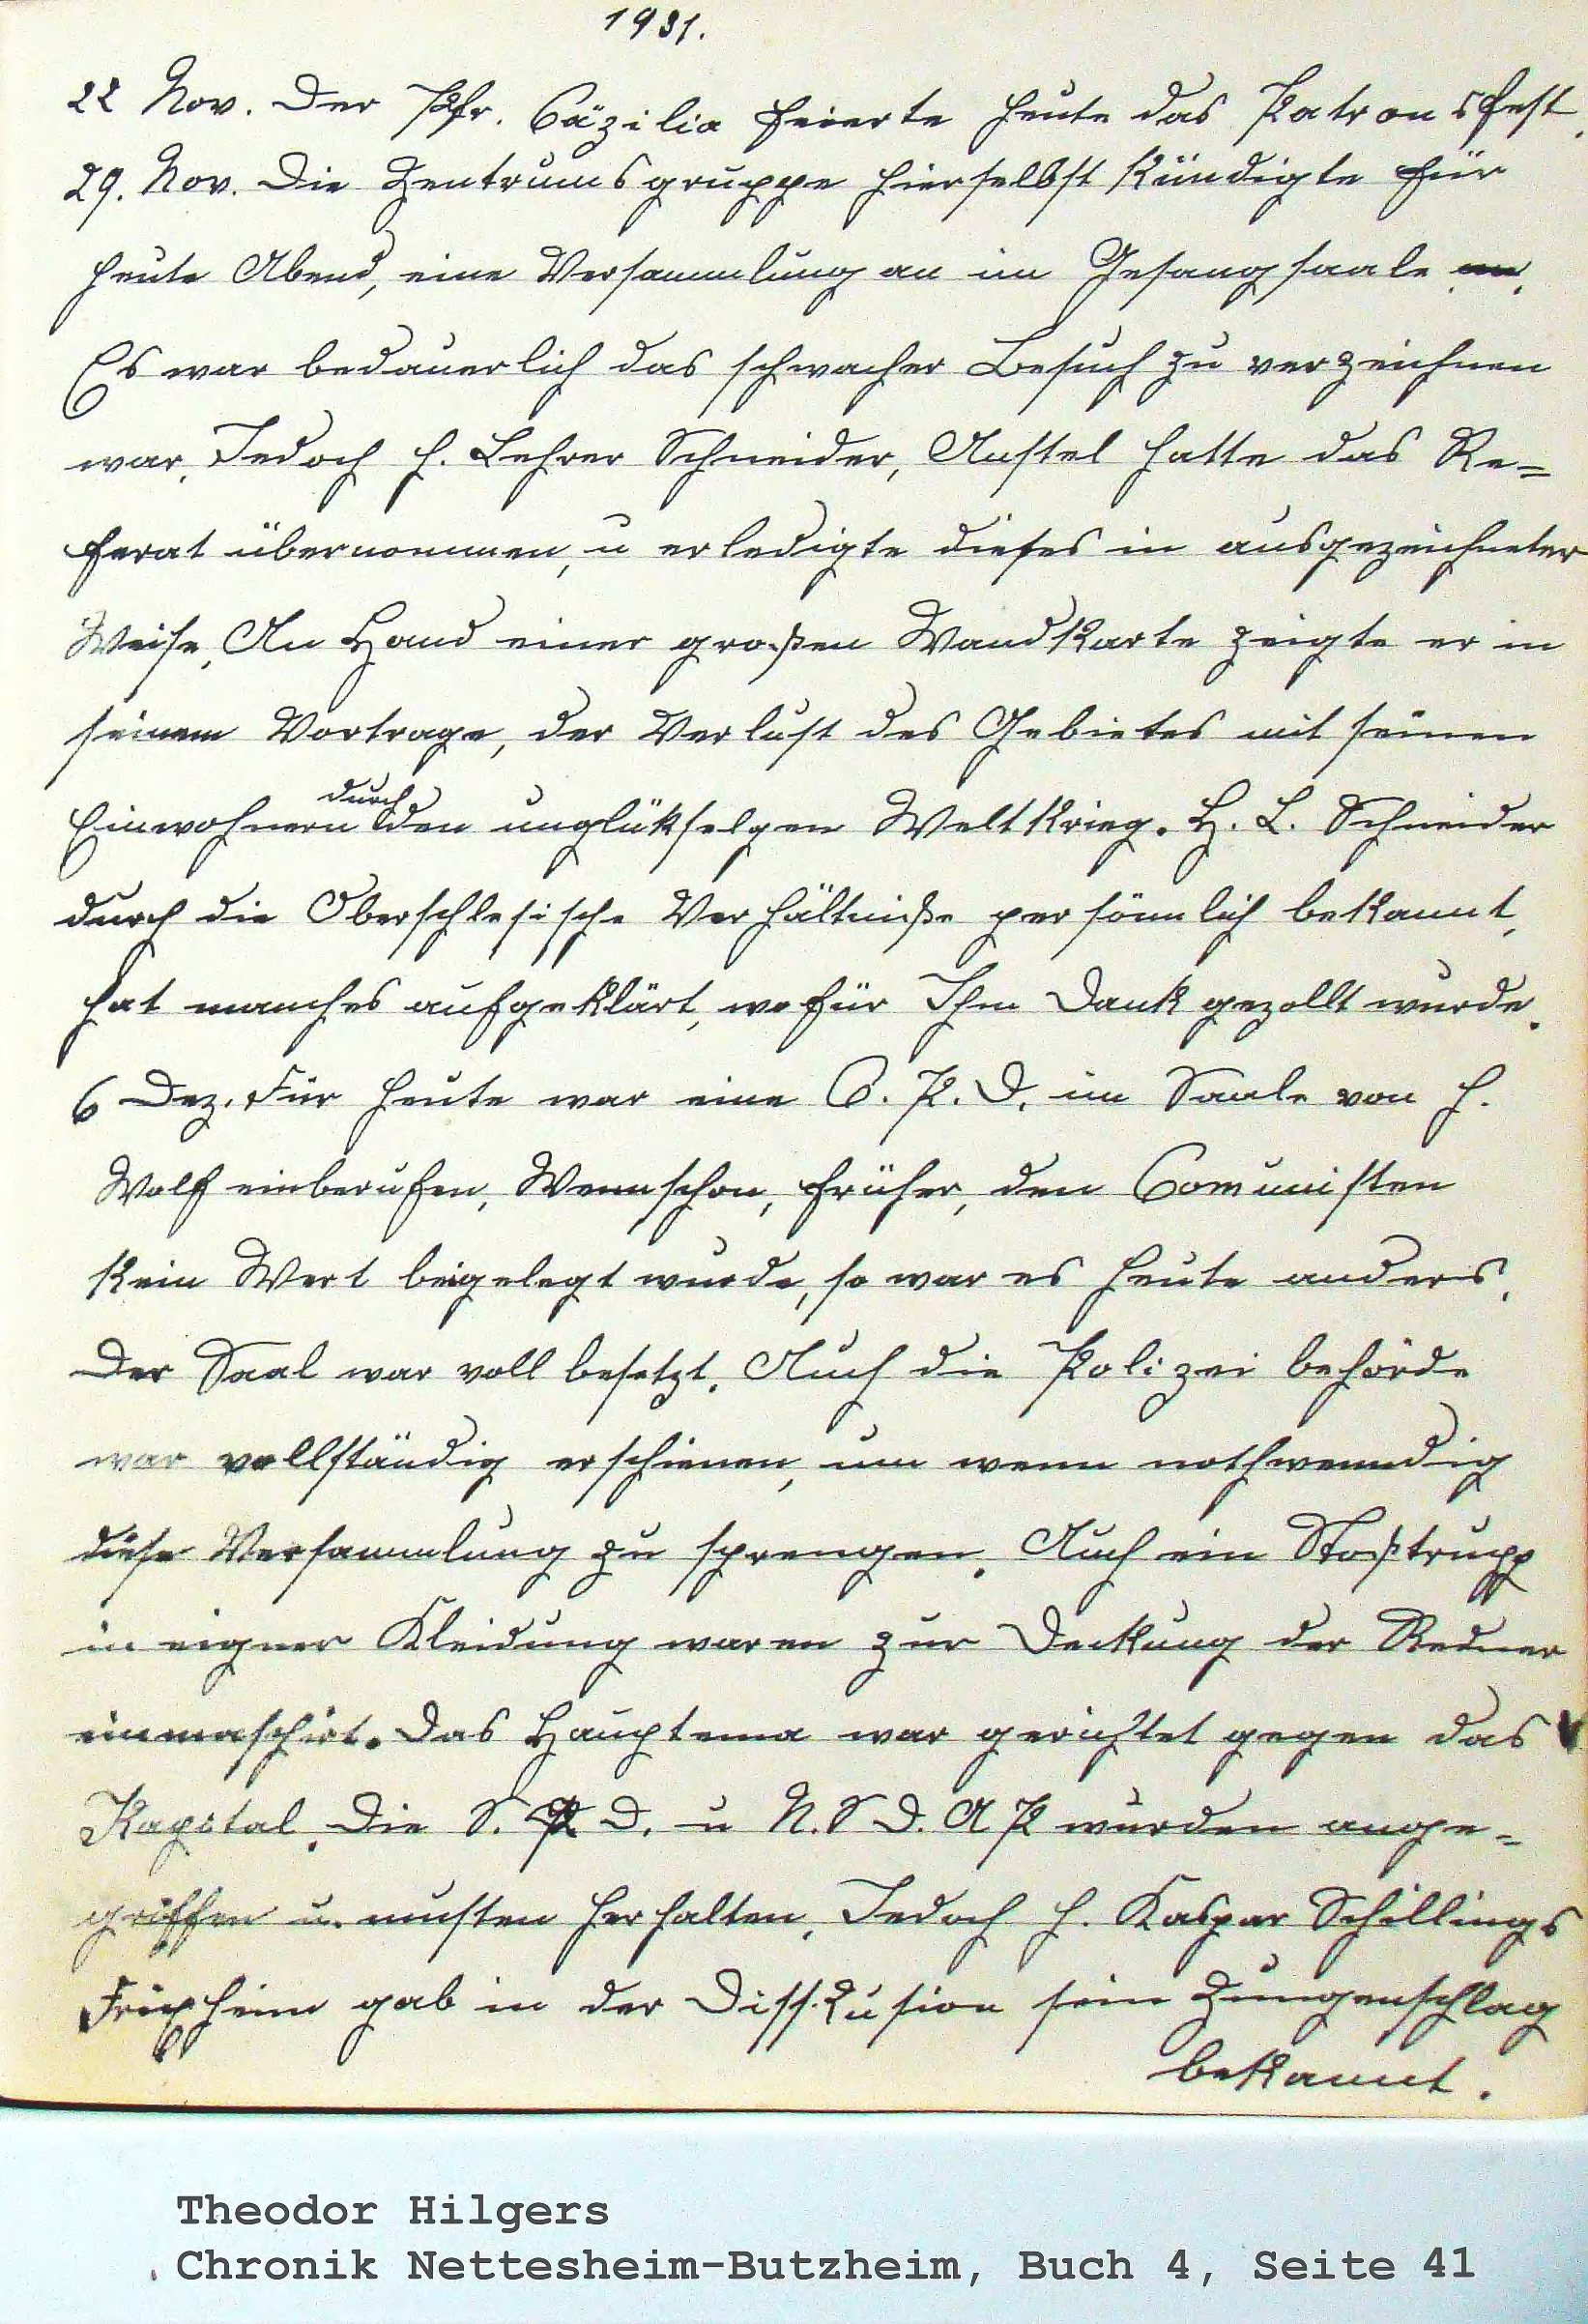 1931.
22 Nov. Der Pfr. Cäzilia feierte heute das Patronsfest.
29. Nov. Die Zentrumsgruppe hierselbst kündigte für
heute Abend, eine Versammlung an im Gesangsaale an.
Es war bedauerlich das schwacher Besuch zu verzeichnen
war, Jedoch H. Lehrer Schneider, Anstel hatte das Re=
ferat übernommen, u erledigte dieses in ausgezeichneter
Weise, An Hand einer großen Wandkarte zeigte er in
seinem Vortrage, der Verlust des Gebietes mit seinen
durch
Einwohnern den unglükselgen Weltkrieg. H. L. Schneider
durch die Oberschlesische Verhältniße persönnlich bekannt,
hat manches aufgeklärt, wofür Ihm Dank gezollt wurde.
6 Dez. Für heute war eine C. P. D. im Saale von H.
Wolf einberufen, Wennschon, früher, den Comunisten
kein Wert beigelegt wurde, so war es heute anders.
Der Saal war voll besetzt. Auch die Polizei behörde
war vollständig erschienen, um wenn nothwenndig
diese Versammlung zu sprengen. Auch ein Stoßtrupp
in eigner Kleidung waren zur Deckung der Redner
einmaschirt. Das Hauptema war gerichtet gegen das
Kapital. Die S. P. D. u N. S D. A P wurden ange=
griffen u. musten herhalten, Jedoch H. Kaspar Schillings
Frixheim gab in der Disskusion sein Zungenschlag
bekannt.
Theodor Hilgers
Chronik Nettesheim-Butzheim, Buch 4, Seite 41